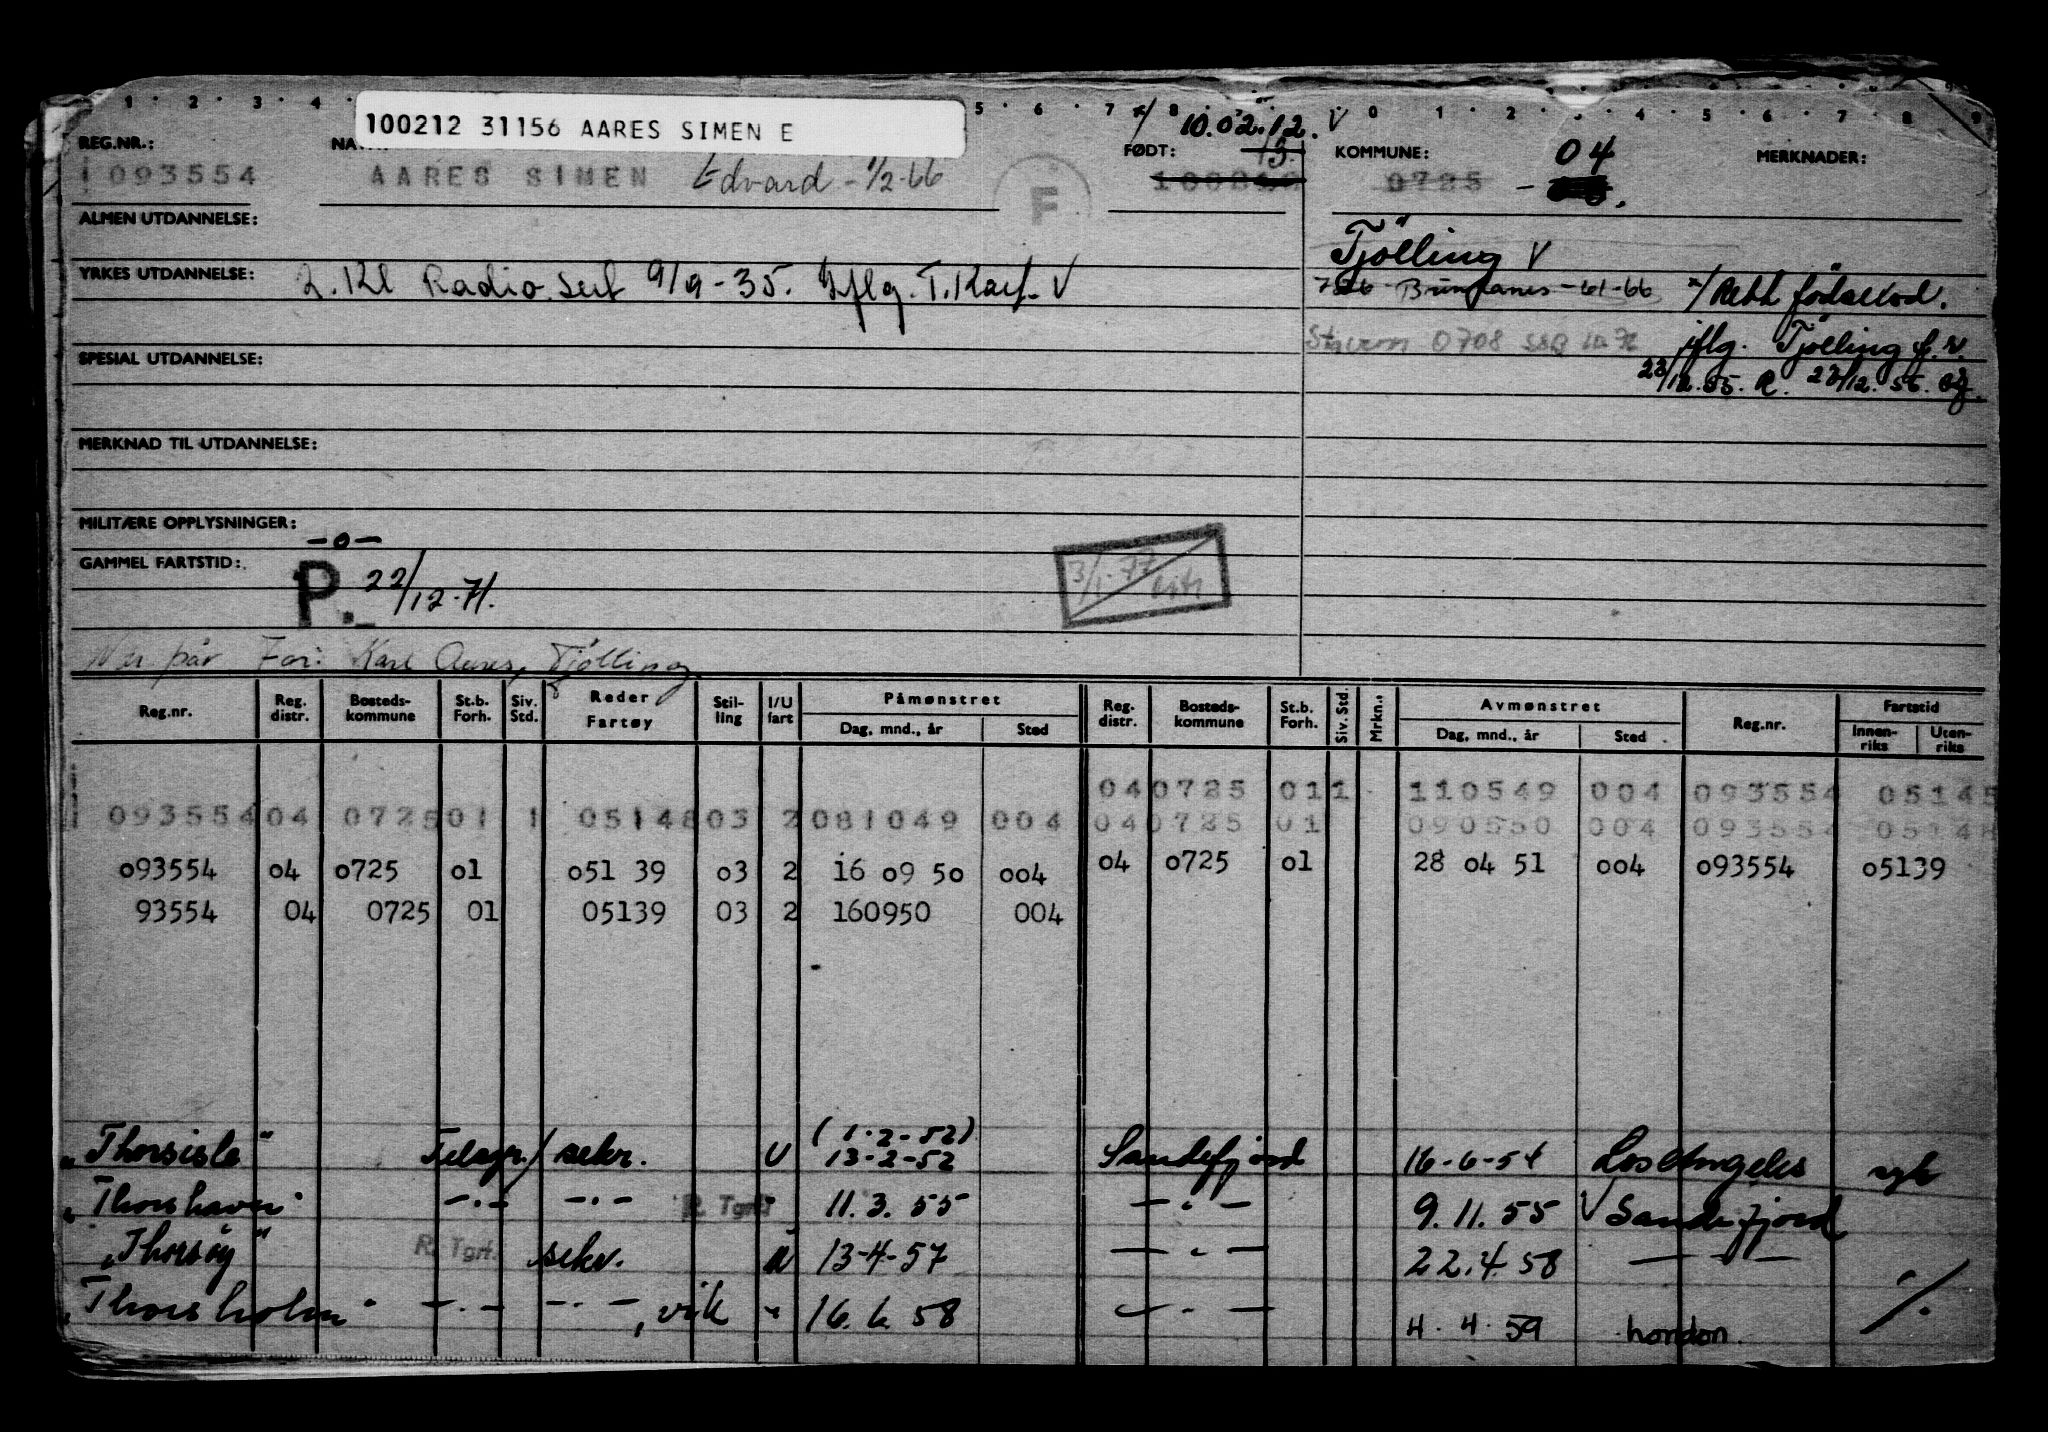 1 · 2 · 3 · 4 · 5 · 6 · 7 8 · 0 1 2 3 · 4 · 5 · 6 · 7 · 8 · 9
100212 31156 AARES SIMEN E
x/ 10.02.12. V
REG.NR.: FØDT: 13. KOMMUNE: 04 MERKNADER:
093554 AARES SIMEN Edvard - 1/2-66 F 0725 -
ALMEN UTDANNELSE:
Tjölling V
YRKES UTDANNELSE: 2. Kl Radio. sert 9/9-35. Iflg. T. Kart. V
-61-66 x/ Rett fødselsd.
SPESIAL UTDANNELSE: 0708 iflg. Tjölling f.r.
23/12.55. R. 23/12.55.
MERKNAD TIL UTDANNELSE:
MILITÆRE OPPLYSNINGER: -o-
GAMMEL FARTSTID: P. 22/12-71. 3/1-77
pår For: Karl Aares, Tjölling
Reg.nr. Reg. distr. Bosteds-kommune St.b. Forh. Siv. Std. Reder Fartøy Stil-ling I/U fart Påmønstret Dag, mnd., år Sted Reg. distr. Bosteds-kommune St.b. Forh. Siv. Std. Mrkn. Avmønstret Dag, mnd., år Sted Reg.nr. Fartstid Innen-riks Uten-riks
04 0725 01 1 110549 004 093554 05145
093554 04 0725 01 1 05148 03 2 081049 004 04 0725 01 090550 004 093554 05148
o93554 o4 o725 o1 o51 39 o3 2 i6 o9 5o oo4 o4 o725 o1 28 o4 51 oo4 o93554 o5139
93554 04 0725 01 05139 03 2 160950 004
(1-2-52)
"Thorsisle" Telegr./ sekr. U 13-2-52 Sandefjord 16-6-54 Los Angeles
"Thorshavn" -·- -·- R. Tgrf. 11.3.55 -·- 9.11.55 V Sandefjord
"Thorsøy" R. Tgrf. sekr. 13-4-57 -·- 22.4.58 -·-
"Thorsholm" -·- -·-, vik " 16.6.58 -·- 4.4.59 London. ·/.